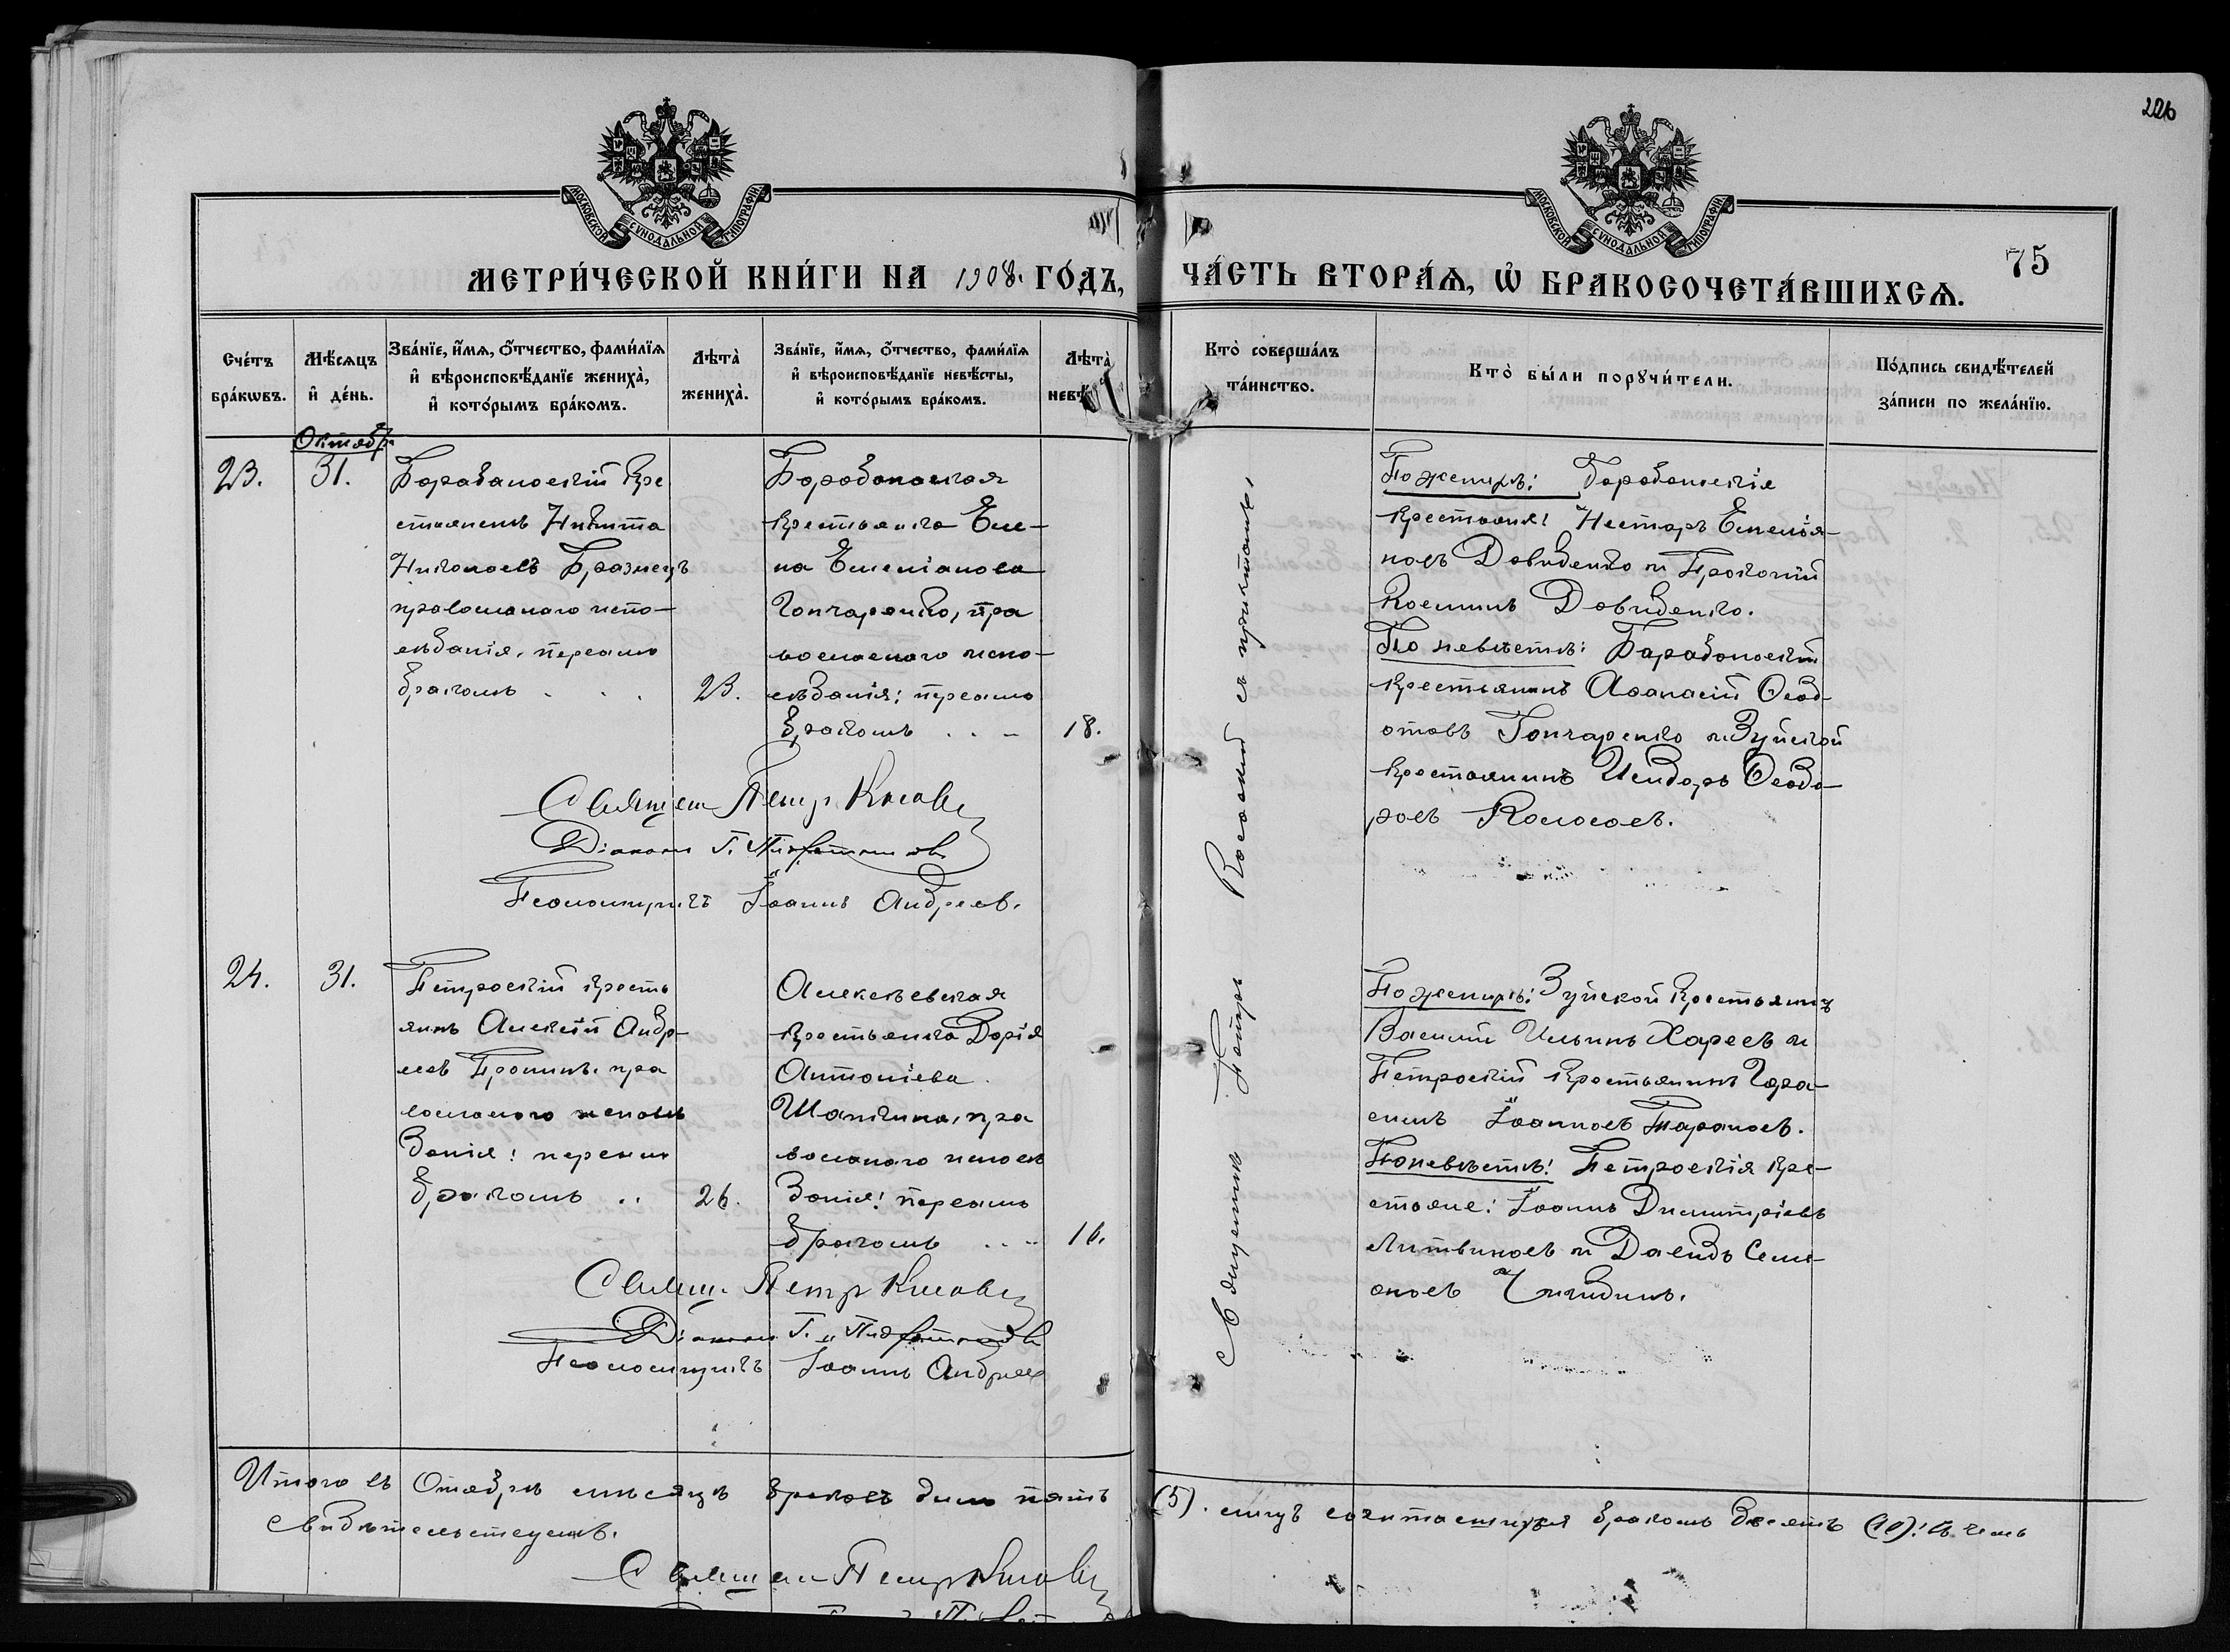 226
75
МОСКОВСКОЙ СУНОДАЛЬНОЙ ТИПОГРАФІИ
МОСКОВСКОЙ СУНОДАЛЬНОЙ ТИПОГРАФІИ
МЕТРИ́ЧЕСКОЙ КНИ́ГИ НА 1908. ГО́ДЪ,
ЧА́СТЬ ВТОРА́Ѧ, Ѡ҆ БРАКОСОЧЕТА́ВШИХСѦ.
Сче́тъ
бра́кѡвъ.
Мѣ́сѧцъ
и҆ де́нь.
Зва́нїе, и҆́мѧ, ѻ҆́тчество, фами́лїѧ
и҆ вѣроисповѣ́данїе жениха̀,
и҆ кото́рымъ бра́комъ.
Лѣта̀
жениха̀.
Зва́нїе, и҆́мѧ, ѻ҆́тчество, фами́лїѧ
и҆ вѣроисповѣ́данїе невѣ́сты,
и҆ кото́рымъ бра́комъ.
Лѣта̀
невѣ́
Кто̀ соверша́лъ
та́инство.
Кто̀ бы́ли порꙋчи́тели.
По́дпись свидѣ́телей
за́писи по жела́нїю.
Октябр.
23.
31.
Барабановскій кре
стьянинъ Никита
Николаевъ Бразнецъ
православнаго испо-
вѣданія, первымъ
бракомъ . . .
23.
Барабановская
крестьянка Еле-
на Емеліанова
Гончаренко, пра
вославнаго испо-
вѣданія; первымъ
бракомъ . . -
18.
По женихѣ: Барабановскіе
крестьяне: Несторъ Емелья-
новъ Давиденко и Прокопій
Косминъ Давиденко.
По невѣстѣ: Барабановскій
крестьянинъ Аѳанасій Ѳеод-
отовъ Гончаренко и Зуйской
крестьянинъ Исидоръ Ѳеодо-
ровъ Колосовъ.
Священ Петр Косовск
Діаконъ Г.
Псаломщикъ Іоаннъ Андреев.
Священникъ Петръ Косовскій съ причтомъ
24.
31.
Петровскій кресть
янинъ Алексій Андр-
еевъ Пронинъ. пра
вославнаго исповѣ
данія: первымъ
бракомъ ..
26.
Алексѣевская
крестьянка Дарія
Антоніева
Шапкина, пра
вославнаго исповѣ
данія: первымъ
бракомъ . . ..
16.
По женихѣ: Зуйской крестьянинъ
Василій Ильинъ Харевъ и
Петровскій крестьянинъ Гера-
симъ Іоанновъ Тарановъ.
По невѣстѣ: Петровскія кре-
стьяне: Іоаннъ Димитріевъ
Литвиновъ и Давидъ Сем-
еновъ
Свящ. Петр Косовск
Діаконъ Г.
Псаломщикъ Іоаннъ Андреев
Итого въ Октябрѣ мѣсяцѣ браковъ было пять
(5). лицъ сочитавшихся бракомъ десять (10): въ чемъ
свидѣтельствуемъ.
Священ Петр Косовск